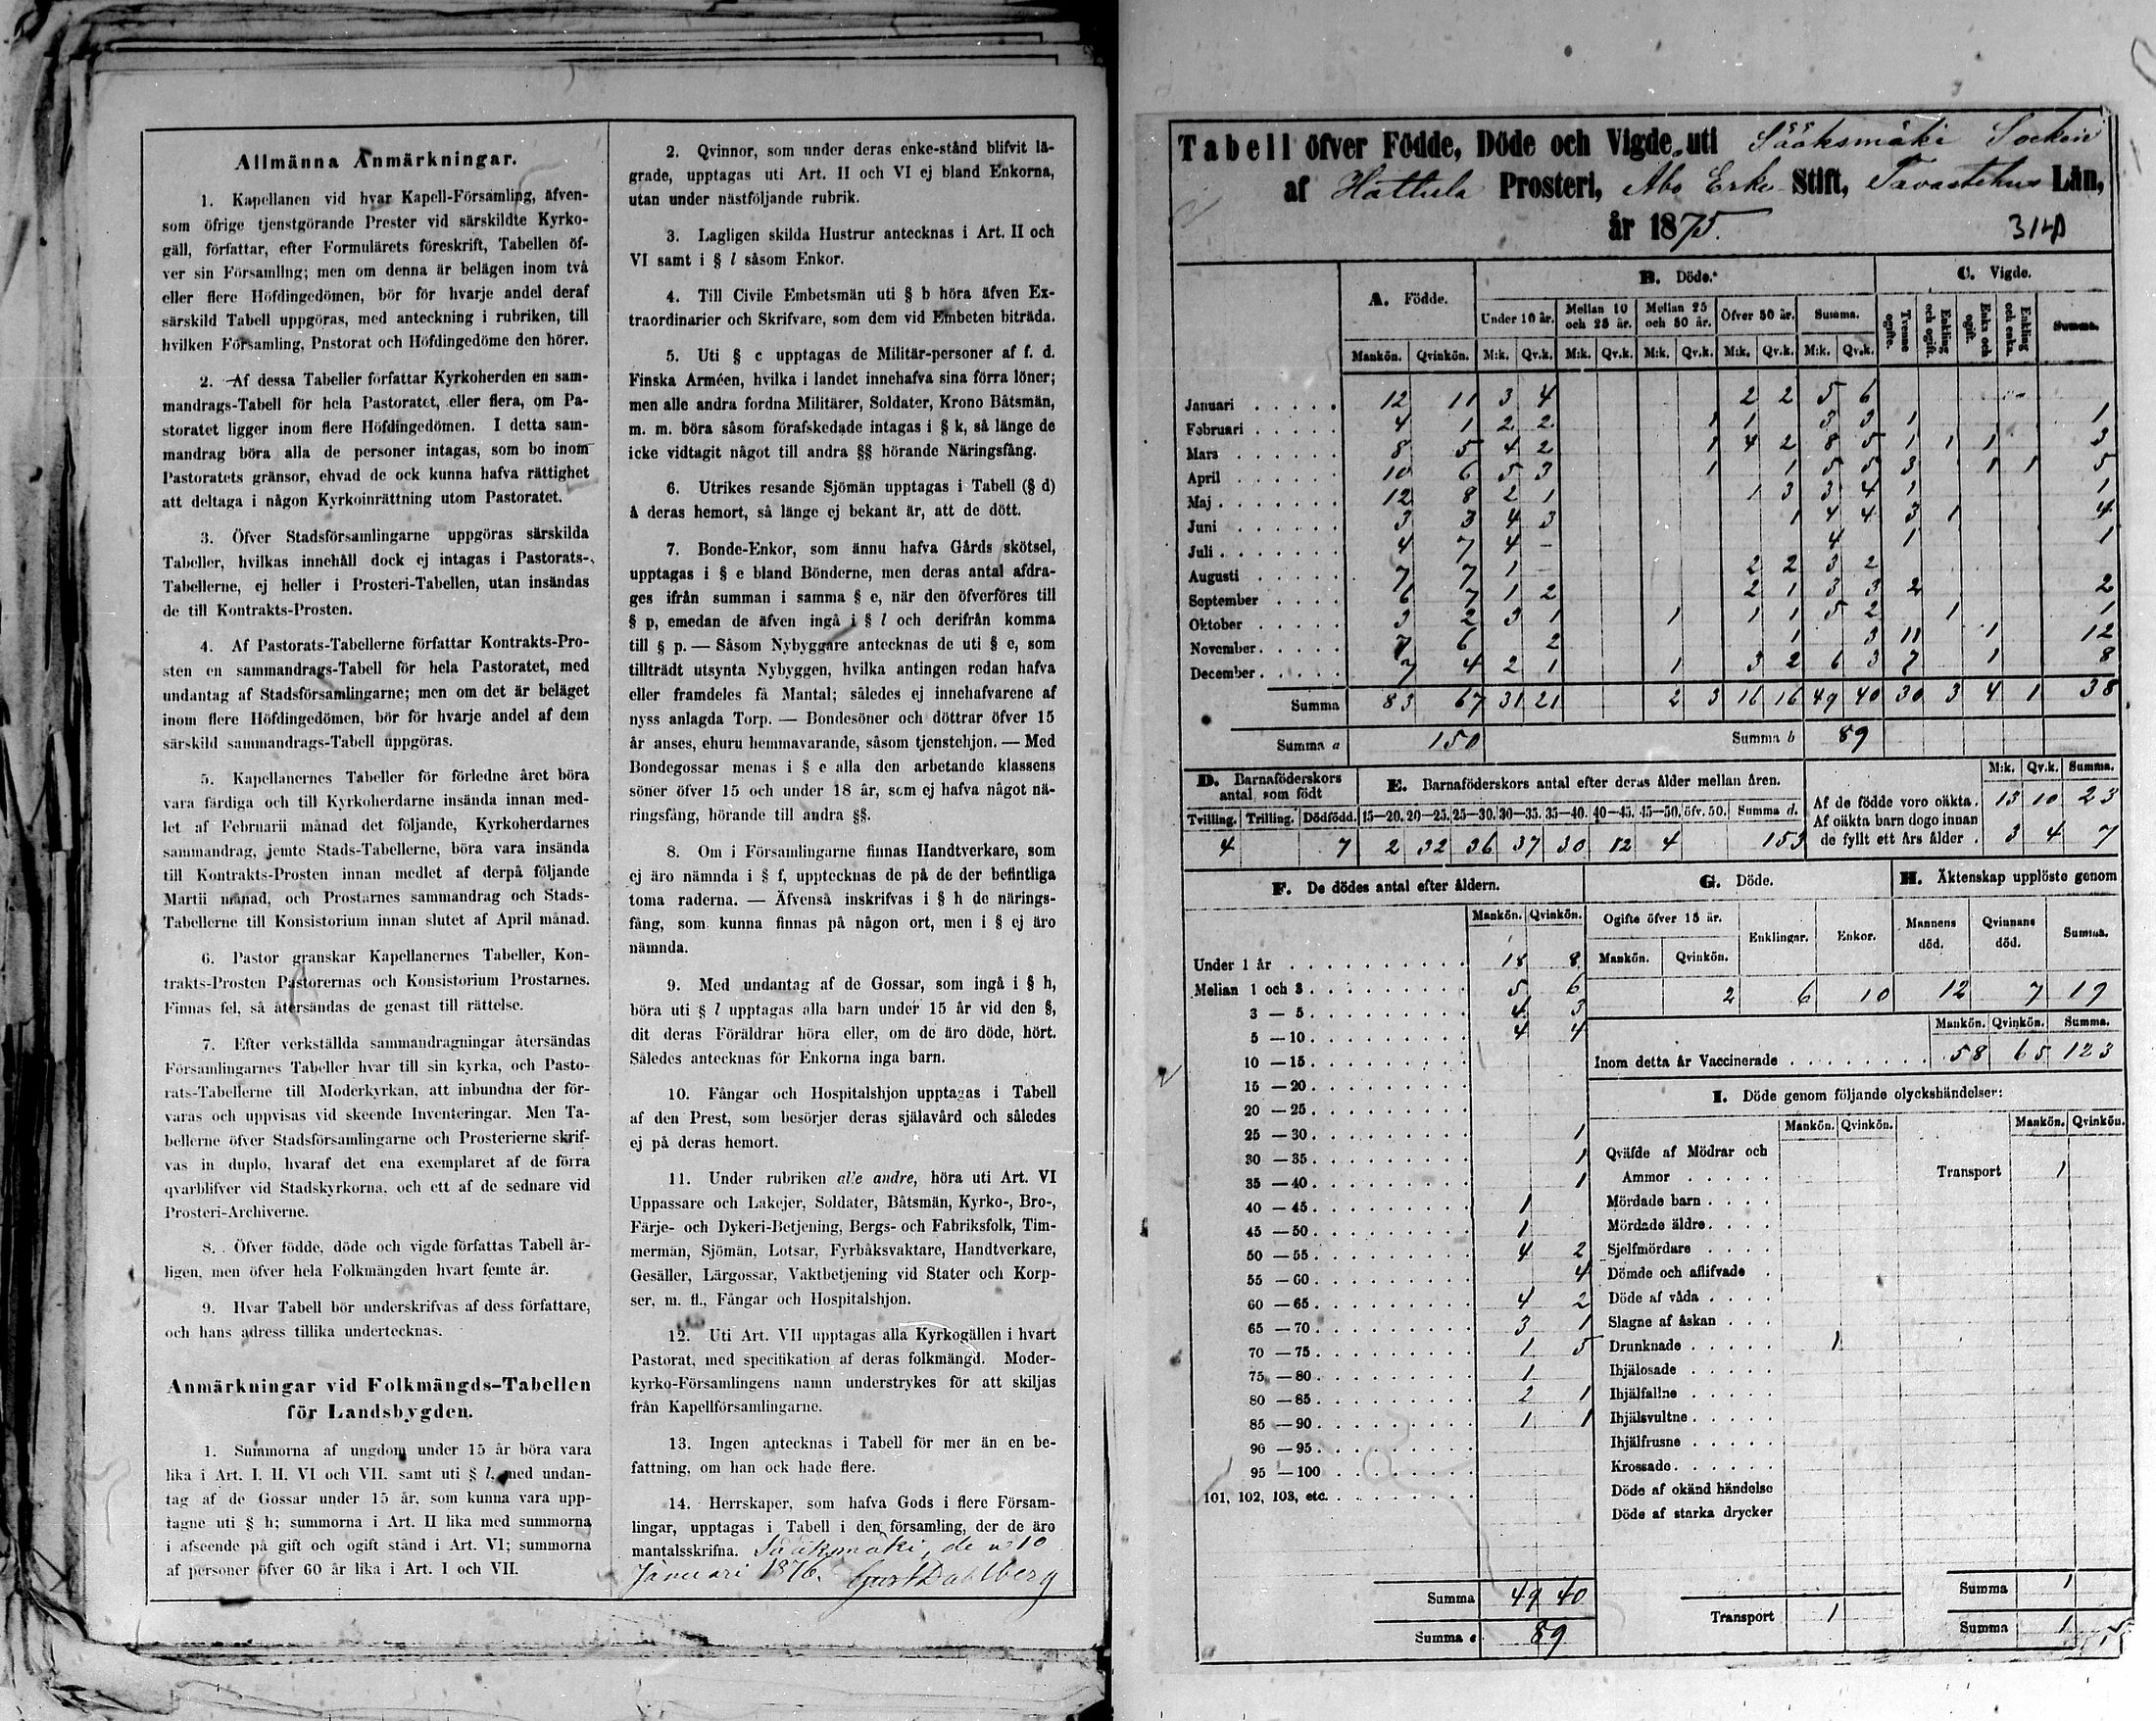 Allmänna Anmärkningar.
1. Kapellanen vid hvar Kapell-Församling, äfven-
som öfrige tjenstgörande Prester vid särskildte Kyrko-
gäll, författar, efter Formulärets föreskrift, Tabellen öf-
ver sin Församling; men om denna är belägen inom två
eller flere Höfdingedömen, bör för hvarje andel deraf
särskild Tabell uppgöras, med anteckning i rubriken, till
hvilken Församling, Pastorat och Höfdingedöme den hörer.
2. Af dessa Tabeller författar Kyrkoherden en sam-
mandrags-Tabell för hela Pastoratet, eller flera, om Pa-
storatet ligger inom flere Höfdingedömen. I detta sam-
mandrag böra alla de personer intagas, som bo inom
Pastoratets gränsor, ehvad de ock kunna hafva rättighet
att deltaga i någon Kyrkoinrättning utom Pastoratet.
3. Öfver Stadsförsamlingarne uppgöras särskilda
Tabeller, hvilkas innehåll dock ej intagas i Pastorats-
Tabellerne, ej heller i Prosteri-Tabellen, utan insändas
de till Kontrakts-Prosten.
4. Af Pastorats-Tabellerne författar Kontrakts-Pro-
sten en sammandrags-Tabell för hela Pastoratet, med
undantag af Stadsförsamlingarne; men om det är beläget
inom flere Höfdingedömen, bör för hvarje andel af dem
särskild sammandrags-Tabell uppgöras.
5. Kapellanernes Tabeller för förledne året böra
vara färdiga och till Kyrkoherdarne insända innan med-
let af Februarii månad det följande, Kyrkoherdarnes
sammandrag, jemte Stads-Tabellerne, böra vara insända
till Kontrakts-Prosten innan medlet af derpå följande
Martii månad, och Prostarnes sammandrag och Stads-
Tabellerne till Konsistorium innan slutet af April månad.
6. Pastor granskar Kapellanernes Tabeller, Kon-
trakts-Prosten Pastorernas och Konsistorium Prostarnes.
Finnas fel, så återsändas de genast till rättelse.
7. Efter verkställda sammandragningar återsändas
Församlingarnes Tabeller hvar till sin kyrka, och Pasto-
rats-Tabellerne till Moderkyrkan, att inbundna der för-
varas och uppvisas vid skeende Inventeringar. Men Ta-
bellerne öfver Stadsförsamlingarne och Prosterierne skrif-
vas in duplo, hvaraf det ena exemplaret af de förra
qvarblifver vid Stadskyrkorna, och ett af de sednare vid
Prosteri-Archiverne.
8. Öfver födde, döde och vigde författas Tabell år-
ligen, men öfver hela Folkmängden hvart femte år.
9. Hvar Tabell bör underskrifvas af dess författare,
och hans adress tillika undertecknas.
Anmärkningar vid Folkmängds-Tabellen
för Landsbygden.
1. Summorna af ungdom under 15 år böra vara
lika i Art. I. II. VI och VII. samt uti § l, med undan-
tag af de Gossar under 15 år, som kunna vara upp-
tagne uti § h; summorna i Art. II lika med summorna
i afseende på gift och ogift stånd i Art. VI; summorna
af personer öfver 60 år lika i Art. I och VII.
2. Qvinnor, som under deras enke-stånd blifvit la-
grade, upptagas uti Art. II och VI ej bland Enkorna,
utan under nästföljande rubrik.
3. Lagligen skilda Hustrur antecknas i Art. II och
VI samt i § l såsom Enkor.
4. Till Civile Embetsmän uti § b höra äfven Ex-
traordinarier och Skrifvare, som dem vid Embeten biträda.
5. Uti § c upptagas de Militär-personer af f. d.
Finska Arméen, hvilka i landet innehafva sina förra löner;
men alle andra fordna Militärer, Soldater, Krono Båtsmän,
m. m. böra såsom förafskedade intagas i § k, så länge de
icke vidtagit något till andra §§ hörande Näringsfång.
6. Utrikes resande Sjömän upptagas i Tabell (§ d)
å deras hemort, så länge ej bekant är, att de dött.
7. Bonde-Enkor, som ännu hafva Gårds skötsel,
upptagas i § e bland Bönderne, men deras antal afdra-
ges ifrån summan i samma § e, när den öfverföres till
§ p, emedan de äfven ingå i § l och derifrån komma
till § p. — Såsom Nybyggare antecknas de uti § e, som
tillträdt utsynta Nybyggen, hvilka antingen redan hafva
eller framdeles få Mantal; således ej innehafvarene af
nyss anlagda Torp. — Bondesöner och döttrar öfver 15
år anses, ehuru hemmavarande, såsom tjenstehjon. — Med
Bondegossar menas i § e alla den arbetande klassens
söner öfver 15 och under 18 år, som ej hafva något nä-
ringsfång, hörande till andra §§.
8. Om i Församlingarne finnas Handtverkare, som
ej äro nämnda i § f, upptecknas de på de der befintliga
toma raderna. — Äfvenså inskrifvas i § h de närings-
fång, som kunna finnas på någon ort, men i § ej äro
nämnda.
9. Med undantag af de Gossar, som ingå i § h,
böra uti § l upptagas alla barn under 15 år vid den §,
dit deras Föräldrar höra eller, om de äro döde, hört.
Således antecknas för Enkorna inga barn.
10. Fångar och Hospitalshjon upptagas i Tabell
af den Prest, som besörjer deras själavård och således
ej på deras hemort.
11. Under rubriken alle andre, höra uti Art. VI
Uppassare och Lakejer, Soldater, Båtsmän, Kyrko-, Bro-,
Färje- och Dykeri-Betjening, Bergs- och Fabriksfolk, Tim-
mermän, Sjömän, Lotsar, Fyrbåksvaktare, Handtverkare,
Gesäller, Lärgossar, Vaktbetjening vid Stater och Korp-
ser, m. fl., Fångar och Hospitalshjon.
12. Uti Art. VII upptagas alla Kyrkogällen i hvart
Pastorat, med specifikation af deras folkmängd. Moder-
kyrko-Församlingens namn understrykes för att skiljas
från Kapellförsamlingarne.
13. Ingen antecknas i Tabell för mer än en be-
fattning, om han ock hade flere.
14. Herrskaper, som hafva Gods i flere Försam-
lingar, upptagas i Tabell i den församling, der de äro
mantalsskrifna. Sääksmäki, den 10
Januari 1876. Gust Dahlberg
Tabell öfver Födde, Döde och Vigde uti Sääksmäki Socken
af Hattula Prosteri, Åbo Erke Stift, Tavastehus Län,
år 1875.
A. Födde. B. Döde. C. Vigde.
Under 10 år. Mellan 10 och 25 år. Mellan 25 och 50 år. Öfver 50 år. Summa. Tvenne ogifte. Enkling och ogift. Enka och ogift. Enkling och enka. Summa.
Mankön. Qvinkön. M:k. Qv.k. M:k. Qv.k. M:k. Qv.k. M:k. Qv.k. M:k. Qv.k.
Januari 12 11 3 4 2 2 5 6
Februari 4 1 2 2 1 1 3 3 1 1
Mars 8 5 4 2 1 4 2 8 5 1 1 1 3
April 10 6 5 3 1 1 5 5 3 1 1 5
Maj 12 8 2 1 1 3 3 4 1 1
Juni 3 3 4 3 1 4 4 3 1 4
Juli 4 7 4 - 4 1 1
Augusti 7 7 1 2 2 3 2
September 6 7 1 2 2 1 3 3 2 2
Oktober 3 2 3 1 1 1 1 5 2 1 1
November 7 6 2 1 3 11 1 12
December 7 4 2 1 1 3 2 6 3 7 1 8
Summa 83 67 31 21 2 3 16 16 49 40 30 3 4 1 38
Summa a 150 Summa b 89
D. Barnaföderskors antal, som födt
Tvilling. Trilling. Dödfödd.
4 7
E. Barnaföderskors antal efter deras ålder mellan åren.
15—20. 20—25. 25—30. 30—35. 35—40. 40—45. 45—50. öfv. 50. Summa d.
2 32 36 37 30 12 4 153
M:k. Qv.k. Summa.
Af de födde voro oäkta. 13 10 23
Af oäkta barn dogo innan
de fyllt ett års ålder. 3 4 7
F. De dödes antal efter åldern.
Mankön. Qvinkön.
Under 1 år 18 8
Mellan 1 och 3 5 6
3—5 4 3
5—10 4 4
10—15
15—20
20—25
25—30 1
30—35 1
35—40 1
40—45 1
45—50 1
50—55 4 2
55—60 4
60—65 4 2
65—70 3 1
70—75 1 5
75—80 1
80—85 2 1
85—90 1 1
90—95
95—100
101, 102, 103, etc.
Summa 49 40
Summa e 89
G. Döde.
Ogifte öfver 15 år. Enklingar. Enkor.
Mankön. Qvinkön.
2 6 10
H. Äktenskap upplöste genom
Mannens död. Qvinnans död. Summa.
12 7 19
Mankön. Qvinkön. Summa.
Inom detta år Vaccinerade 58 65 123
I. Döde genom följande olyckshändelser:
Mankön. Qvinkön. Mankön. Qvinkön.
Qväfde af Mödrar och
Ammor
Mördade barn
Mördade äldre
Sjelfmördare
Dömde och aflifvade
Döde af våda
Slagne af åskan
Drunknade 1
Ihjälosade
Ihjälfallne
Ihjälsvultne
Ihjälfrusne
Krossade
Döde af okänd händelse
Döde af starka drycker
Transport 1
Transport 1
Summa 1
Summa 1